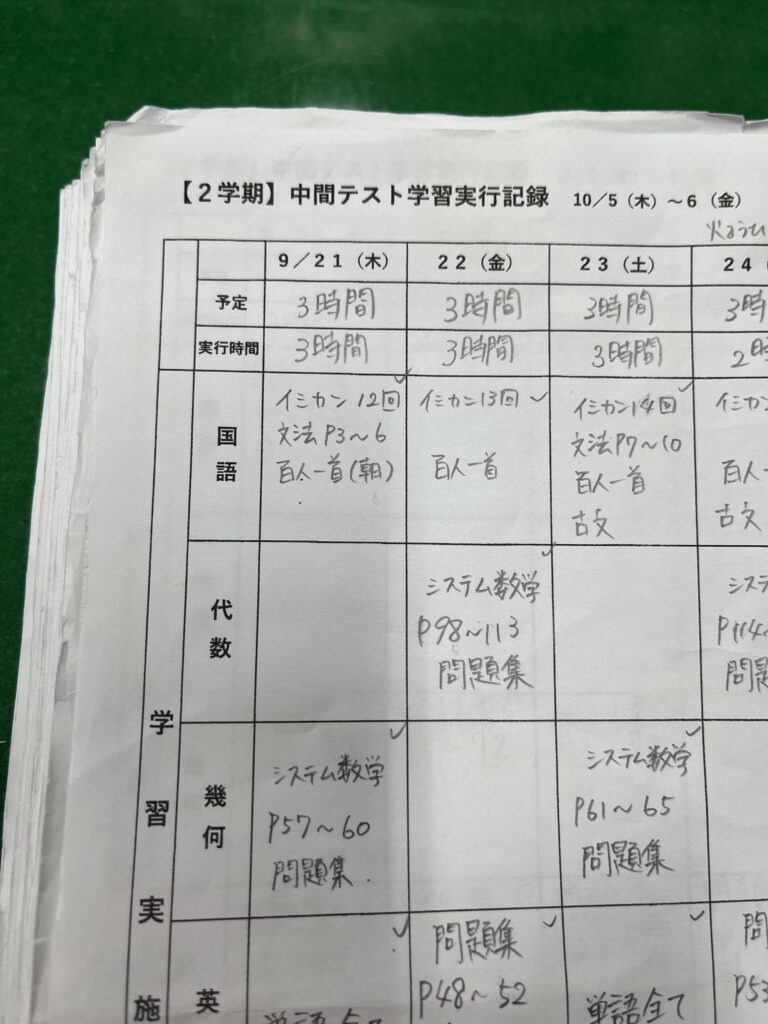 【2学期】中間テスト学習実行記録 10/5（木）～6（金）
9/21（木） 22（金） 23（土） 24
予定 3時間 3時間 3時間 3時
実行時間 3時間 3時間 3時間 2時
学習実施
国語
イミカン 12回
文法 P3～6
百人一首(朝)
イミカン13回
百人一首
イミカン14回
文法 P7～10
百人一首
古文
イミカン
百人一
古文
代数
システム数学
P98～113
問題集
システ
P114～
問題
幾何
システム数学
P57～60
問題集
システム数学
P61～65
問題集
英
問題集
P48～52
単語全て
問
P53